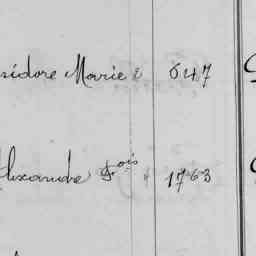 sidore Marie 647
lexandre Fois 1763